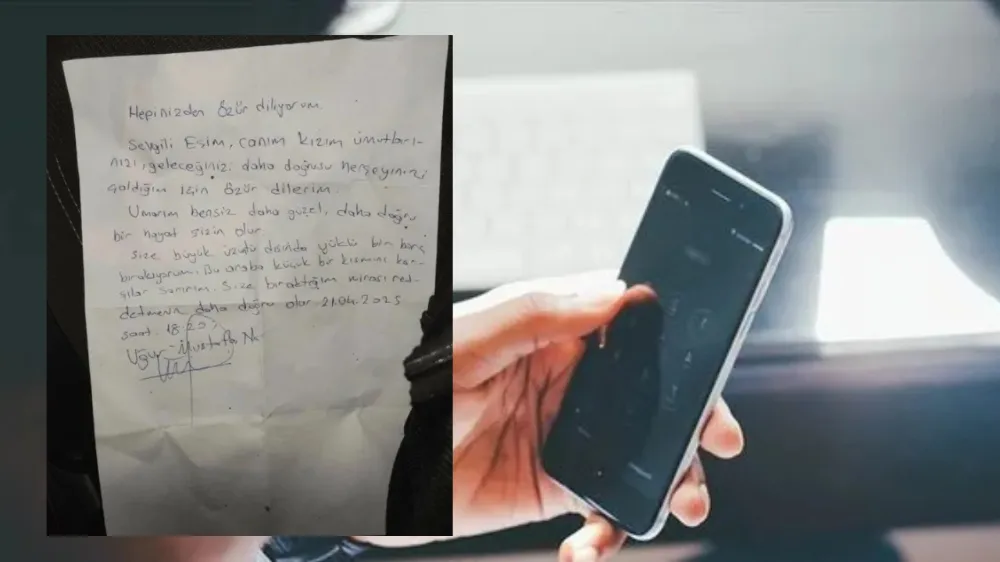 Hepinizden özür diliyorum.
Sevgili Eşim, canım kızım ümutları-
nızı, geleceğinizi daha doğrusu herşeyinizi
çaldığım için özür dilerim.
Umarım bensiz daha güzel, daha doğru
bir hayat sizin olur
Size büyük üzüntü dışında yüklü bir borç
bırakıyorum. Bu araba küçük bir kısmını kar-
şılar sanırım. Size bıraktığım mirası red-
detmeniz daha doğru olur 21.04.2025
saat: 18:20
Uğur Mustafa